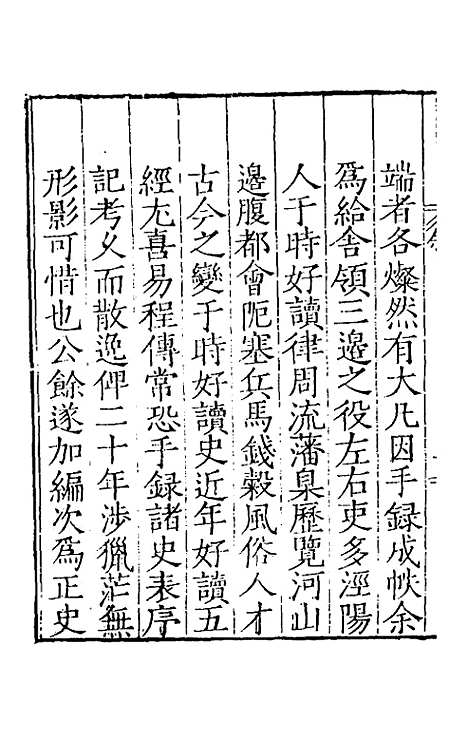 端者各燦然有大凡因手録成帙余
爲給舍領三邉之役左右吏多涇陽
人于時好讀律周流藩臬歷覽河山
邉腹都會阨塞兵馬錢穀風俗人才
古今之變于時好讀史近年好讀五
經尤喜易程傳常恐手録諸史表序
記考乂而散逸俾二十年涉獵茫無
形影可惜也公餘遂加編次爲正史